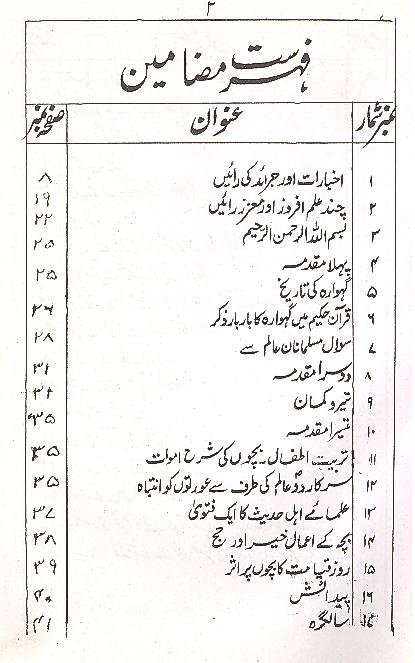 ۲
فہرست مضامین
نمبر شمار عنوان صفحہ نمبر
۱ اخبارات اور جرائد کی رائیں ۸
۲ چند علم افروز اور معزز رائیں ۱۹
۳ بسم اللہ الرحمن الرحیم ۲۲
۴ پہلا مقدمہ ۲۵
۵ گہوارہ کی تاریخ ۲۵
۶ قرآن حکیم میں گہوارہ کا بار بار ذکر ۲۶
۷ سوال مسلمانان عالم سے ۲۸
۸ دوسرا مقدمہ ۳۱
۹ تیر و کمان ۳۱
۱۰ تیسرا مقدمہ ۳۵
۱۱ تربیت اطفال۔ بچوں کی شرح اموات ۳۵
۱۲ سرکار دو عالم کی طرف سے عورتوں کو انتباہ ۳۵
۱۳ علمائے اہل حدیث کا ایک فتویٰ ۳۷
۱۴ بچہ کے اعمال خیر اور حج ۳۸
۱۵ روز قیامت کا بچوں پر اثر ۳۹
۱۶ پیدائش ۴۰
۱۷ سالگرہ ۴۱